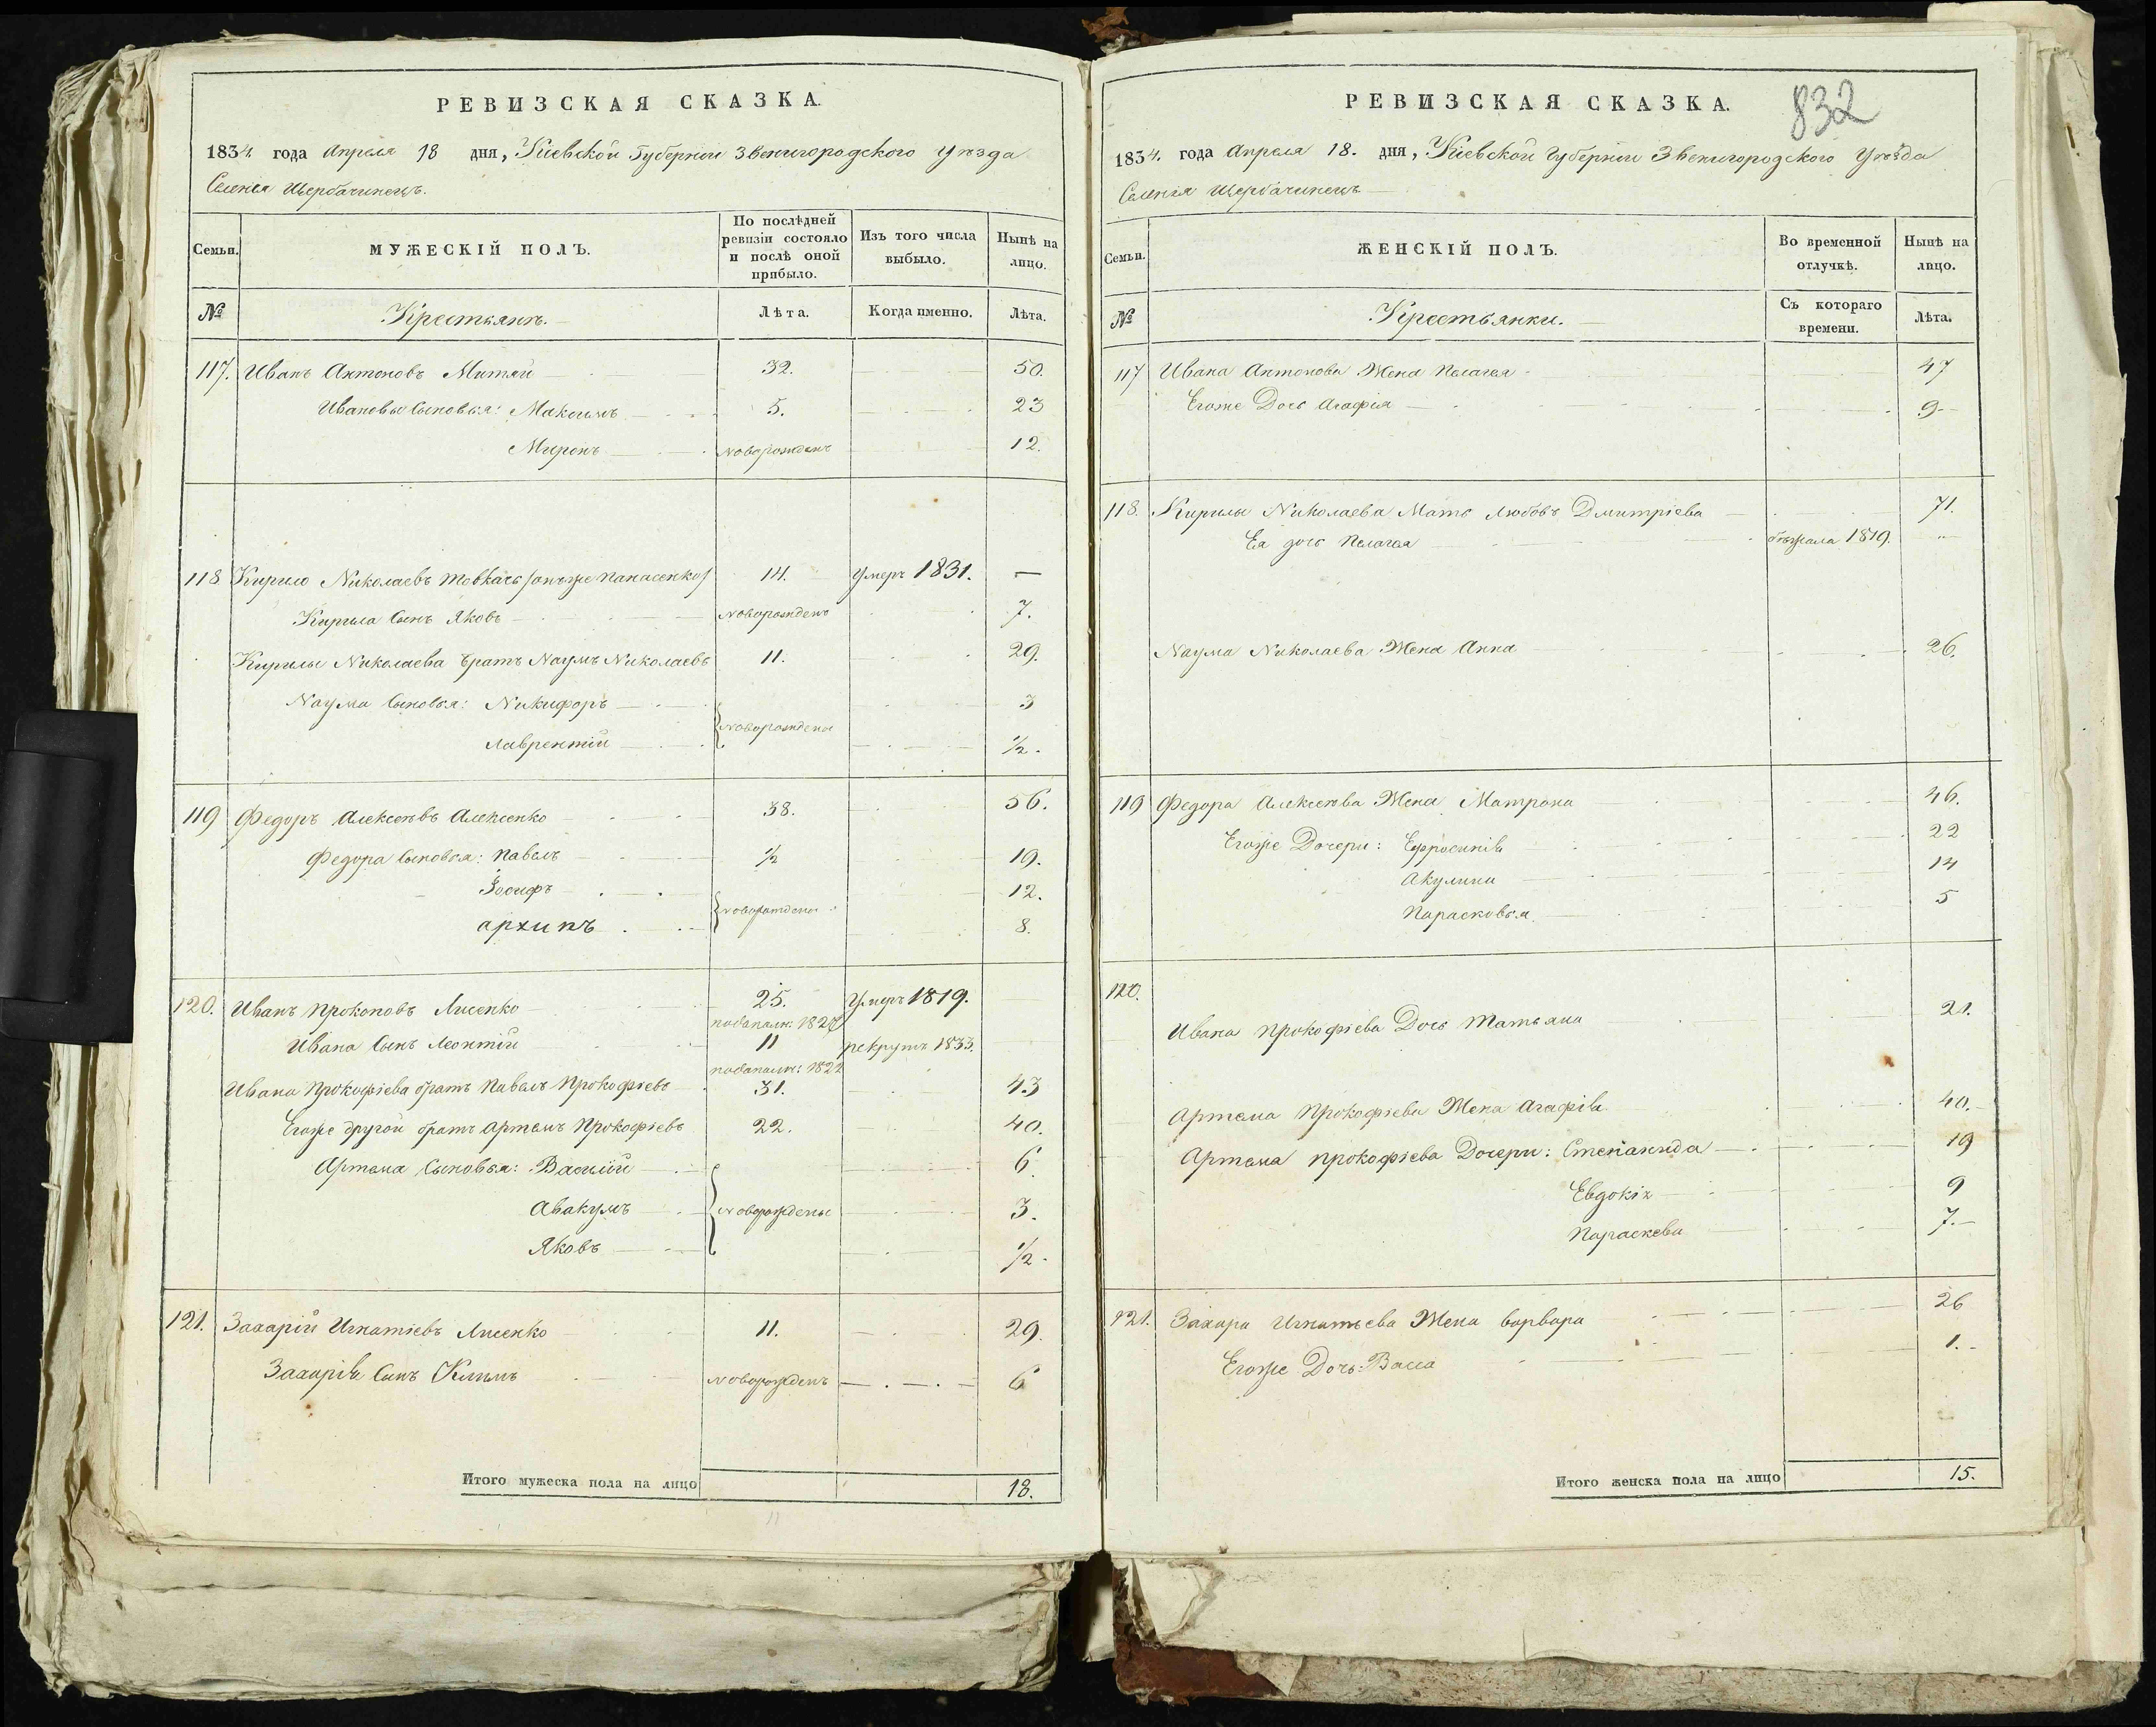 РЕВИЗСКАЯ СКАЗКА.
1834 года Апреля 18 дня, Киевской Губернии Звенигородского Уезда
Селенія Щербачинецъ.
Семьи. МУЖЕСКІЙ ПОЛЪ. По послѣдней ревизіи состояло и послѣ оной прибыло. Изъ того числа выбыло. Нынѣ на лицо.
№ Крестьянъ. Лѣта. Когда именно. Лѣта.
117. Иванъ Антоновъ Митяй 32. 50.
Ивановы Сыновья: Максимъ 5. 23
Миронъ новорожденъ 12.
118 Кирило Николаевъ Товкачъ (онъже Панасенко) 14. умеръ 1831. —
Кирила Сынъ Яковъ новорожденъ 7.
Кирилы Николаева братъ Наумъ Николаевъ 11. 29.
Наума Сыновья: Никифоръ 3
новорождены
Лаврентій ½.
119 Федоръ Алексѣевъ Алексенко 38. 56.
Федора Сыновья: Павелъ ½ 19.
Іосифъ 12.
новорождены
Архипъ 8.
120. Иванъ Прокоповъ Лисенко 25. Умеръ 1819.
Ивана Сынъ Леонтій 11 рекрутъ 1833.
1822
Ивана Прокофіева братъ Павелъ Прокофіевъ 31. 43
Егоже другой братъ Артемъ Прокофіевъ 22. 40.
Артема Сыновья: Василій 6
Авакумъ новорождены 3.
Яковъ ½.
121. Захарій Игнатіевъ Лисенко 11. 29.
Захарія Сынъ Климъ новорожденъ 6
Итого мужеска пола на лицо 18.
832
РЕВИЗСКАЯ СКАЗКА.
1834. года Апреля 18. дня, Киевской Губерніи Звенигородского Уѣзда
Селенія Щербачинецъ
Семьи. ЖЕНСКІЙ ПОЛЪ. Во временной отлучкѣ. Нынѣ на лицо.
№ Крестьянки. Съ котораго времени. Лѣта.
117 Ивана Антонова Жена Пелагея 47
Егоже Дочь Агафія 9
118. Кирилы Николаева Мать Любовь Дмитріева 71.
Ея дочь Пелагея бѣжала 1819. "
Наума Николаева Жена Анна 26.
119 Федора Алексѣева Жена Матрона 46.
Егоже Дочери: Ефросинія 22
Акулина 14
Парасковья 5
120.
Ивана Прокофіева Дочь Татьяна 21.
Артема Прокофіева Жена Агафія 40.
Артема Прокофіева Дочери: Степанида 19
Евдокія 9
Параскева 7.
121. Захара Игнатьева Жена Варвара 26
Егоже Дочь: Васса 1.
Итого женска пола на лицо 15.